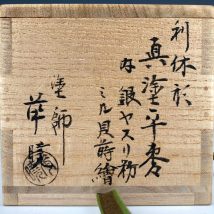 利休形
真塗平棗
内銀ヤスリ粉
ミル貝蒔繪
塗師